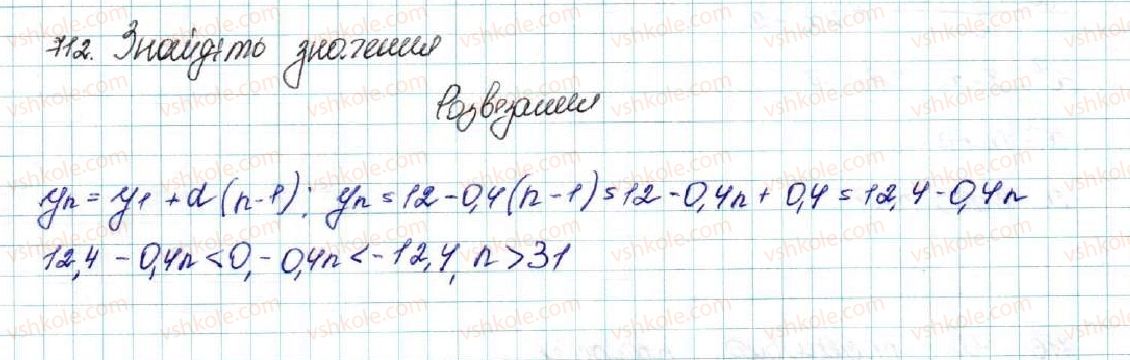 712. Знайдіть значення
Розвезання
yn = y1 + d(n-1); yn = 12 - 0,4(n-1) = 12 - 0,4n + 0,4 = 12,4 - 0,4n
12,4 - 0,4n < 0, - 0,4n < - 12,4, n > 31
vshkole.com